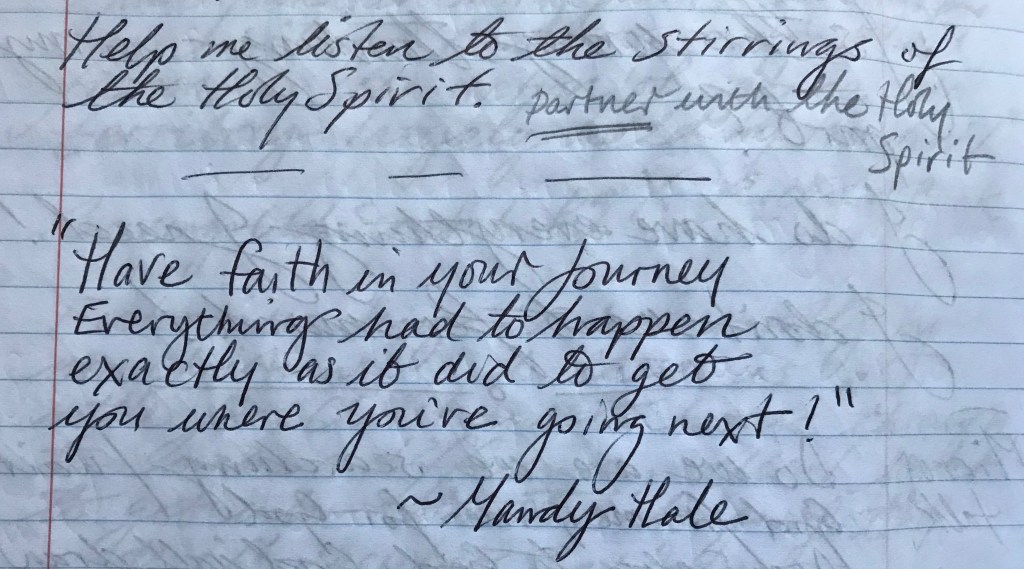 Help me listen to the stirrings of
the Holy Spirit. partner with the Holy
Spirit
"Have faith in your journey
Everything had to happen
exactly as it did to get
you where you're going next!"
~ Mandy Hale